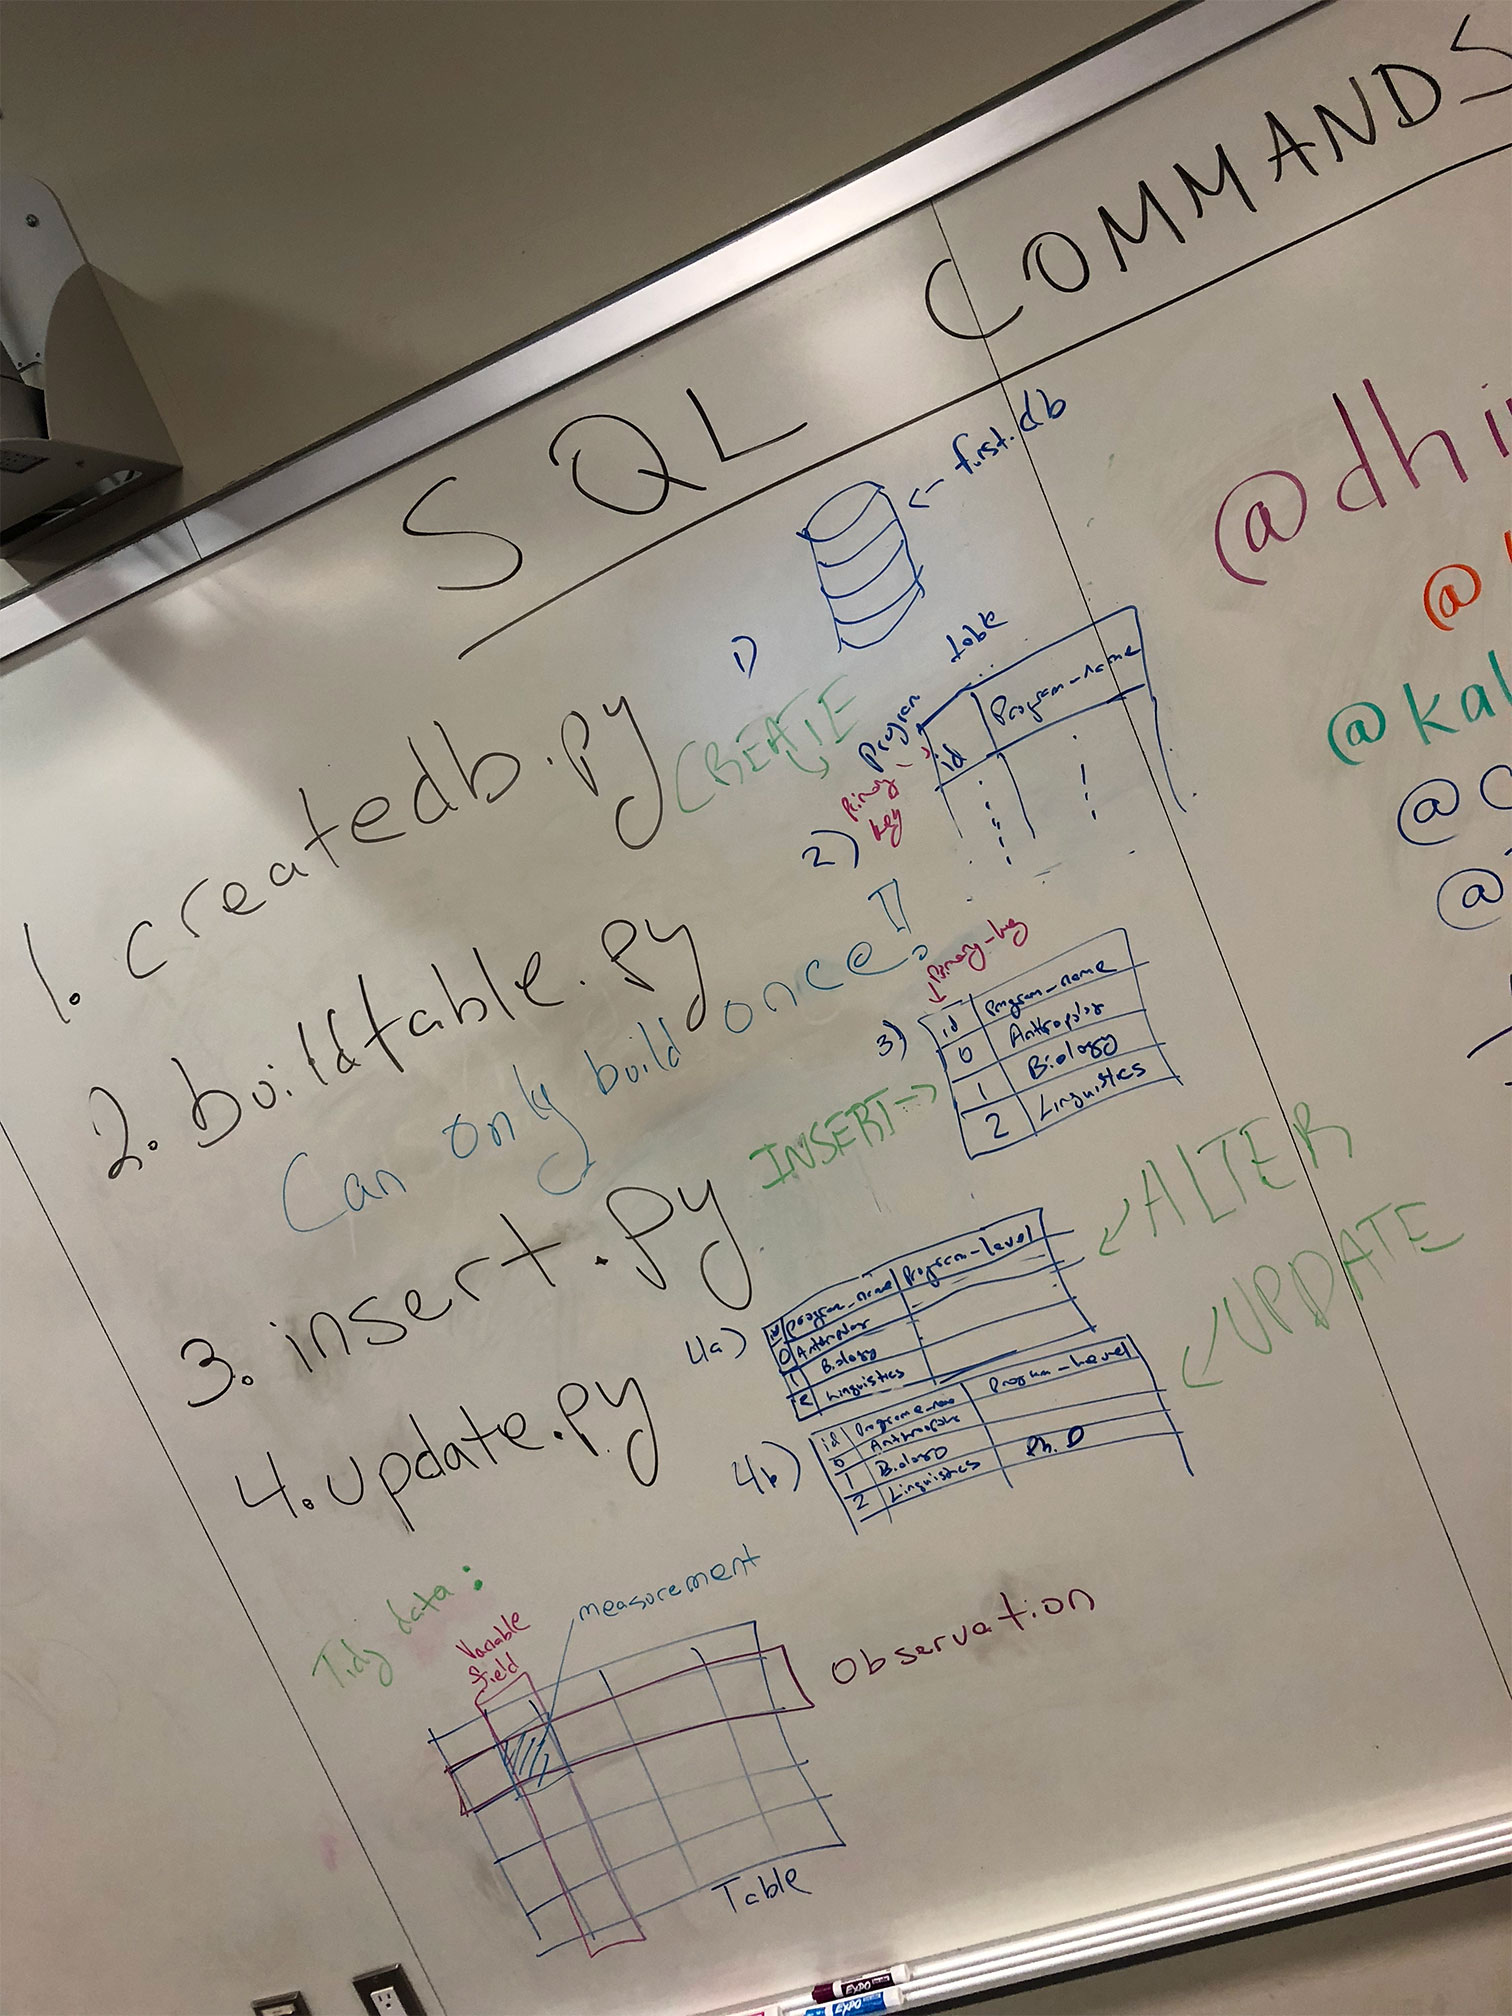 SQL COMMANDS
1. createdb.py
CREATE
2. buildtable.py
Can only build once!!
3. insert.py
INSERT->
4. update.py
1)
<- first.db
2)
Program table
Primary key
id Program_name
3)
Primary_key
id Program_name
0 Anthropology
1 Biology
2 Linguistics
4a)
<- ALTER
id program_name Program-level
0 Anthropology
1 Biology
2 Linguistics
4b)
<- UPDATE
id Program-name Program-Level
0 Anthropology
1 Biology Ph.D
2 Linguistics
Tidy data:
Variable
field
measurement
Observation
Table
@kal
EXPO
EXPO